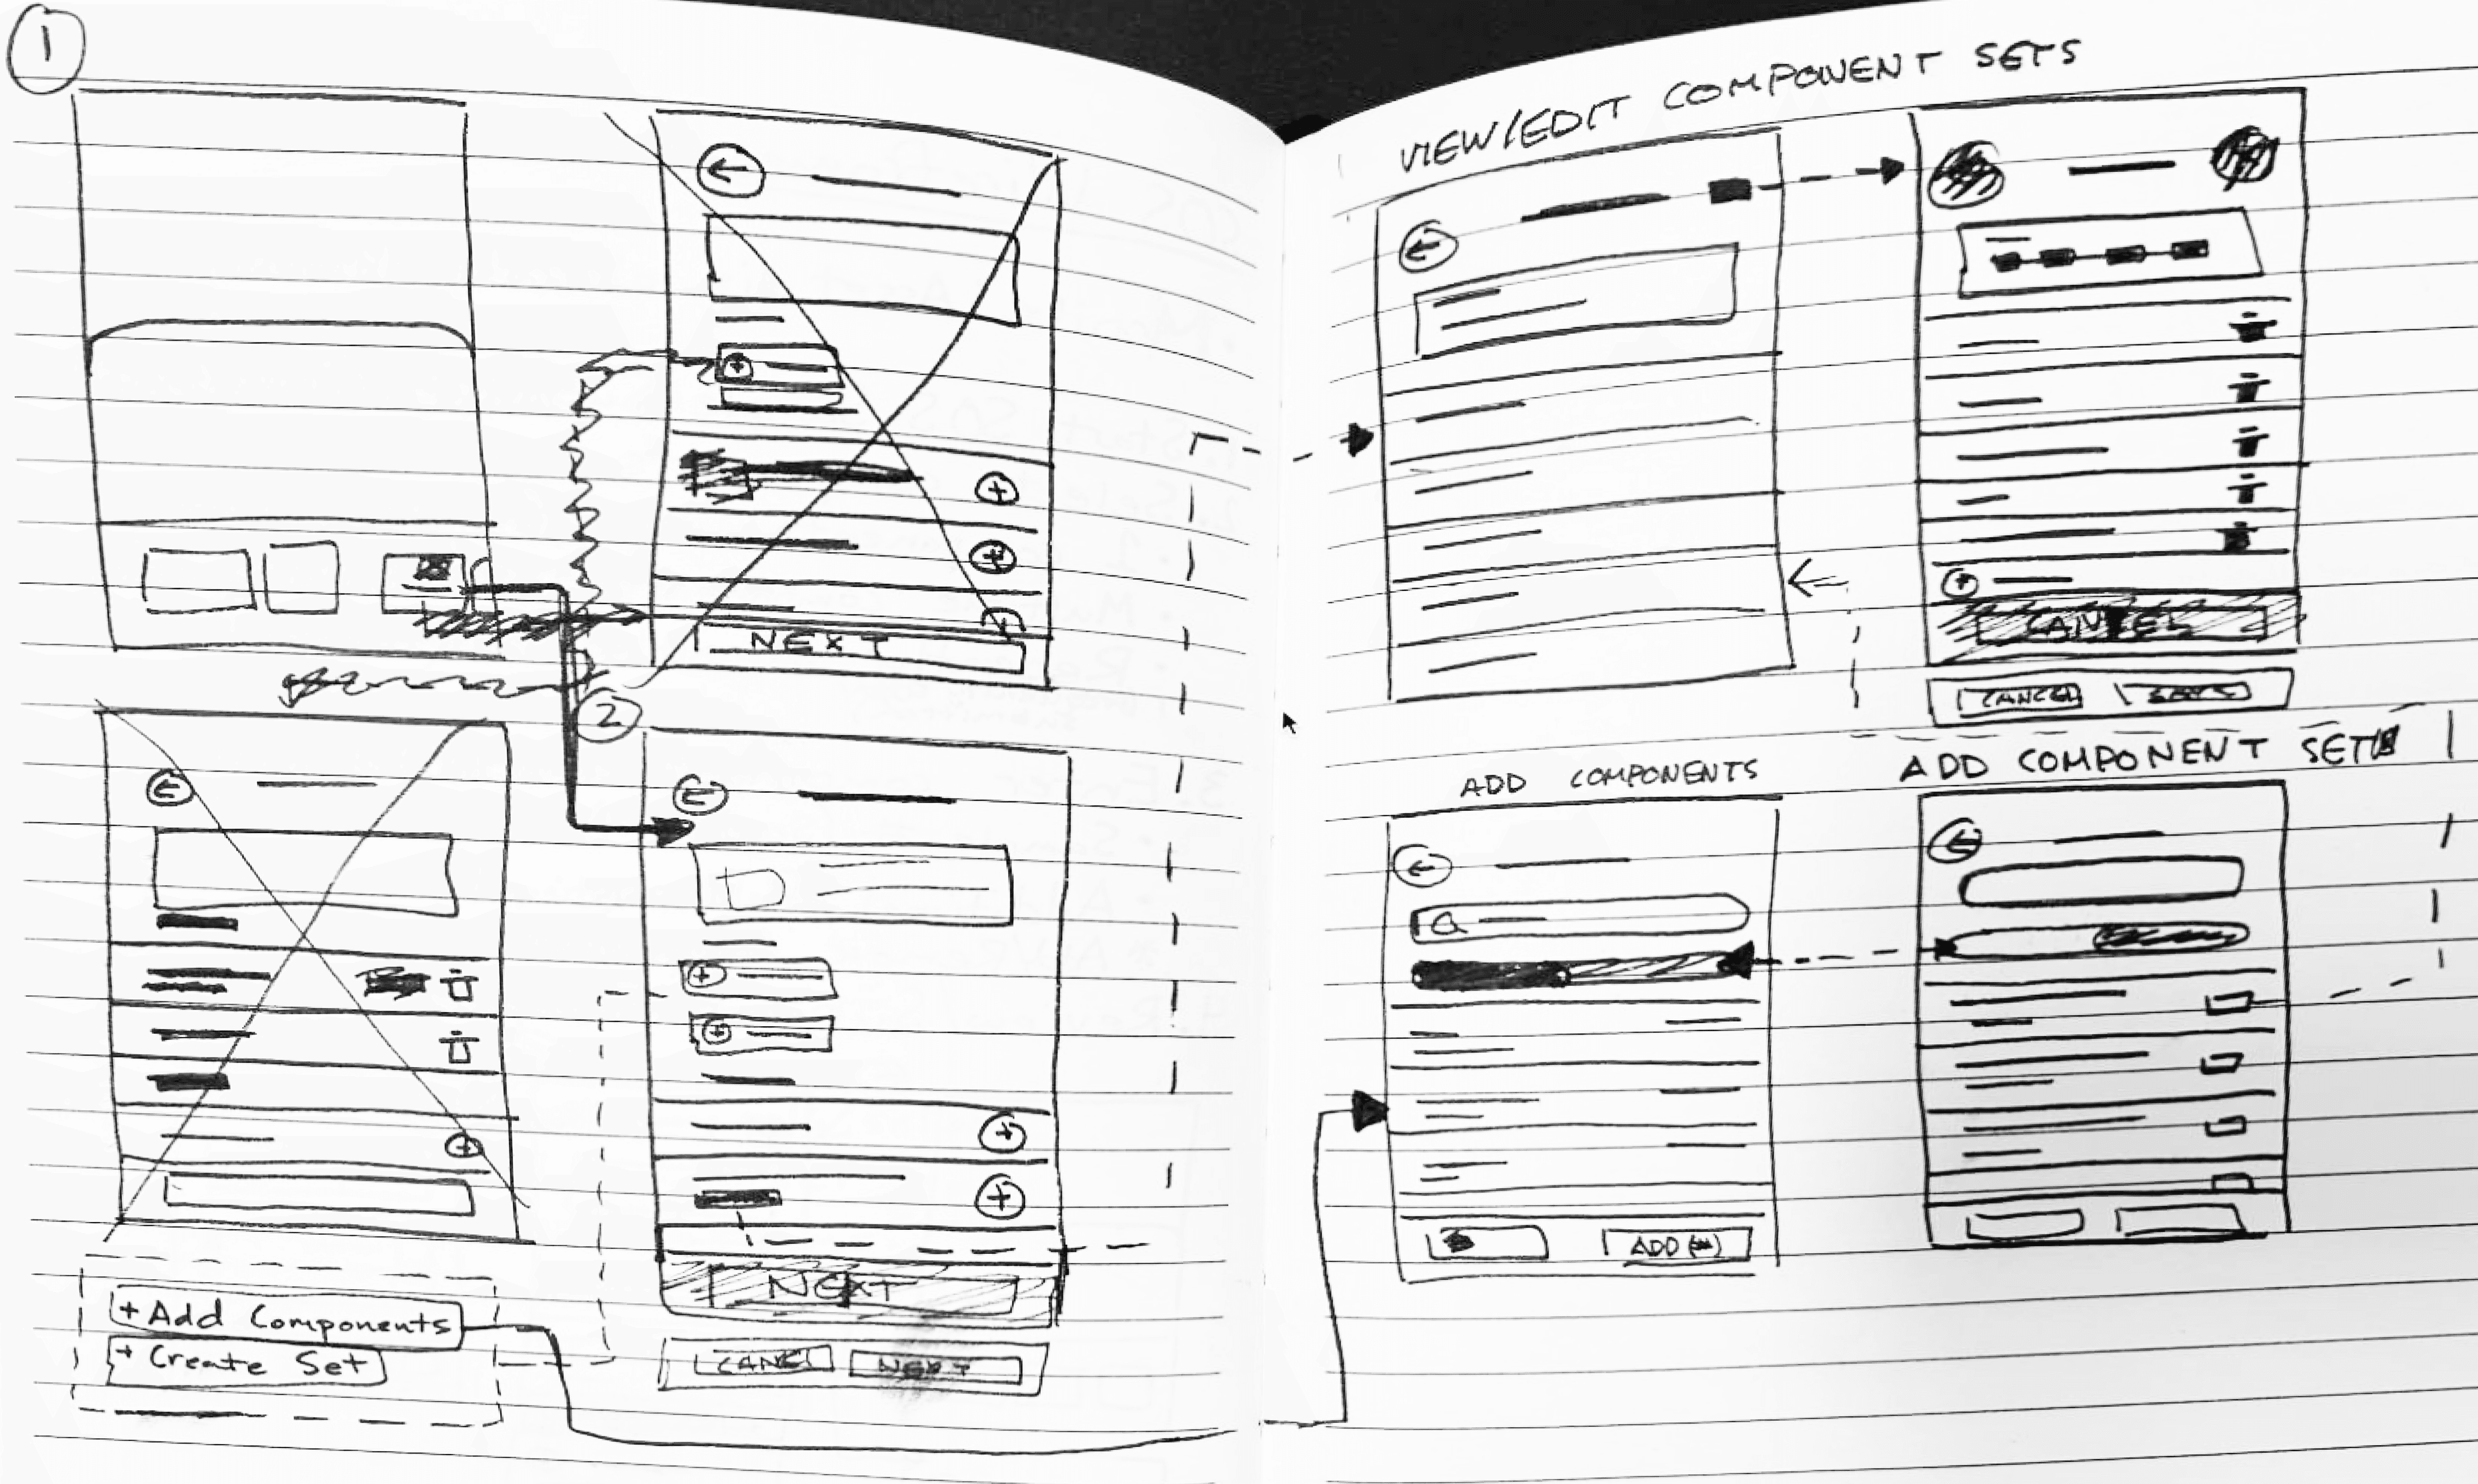 1
NEXT
2
NEXT
CANCEL NEXT
+ Add Components
+ Create Set
VIEW/EDIT COMPONENT SETS
CANCEL
CANCEL
ADD COMPONENTS
ADD COMPONENT SET
ADD